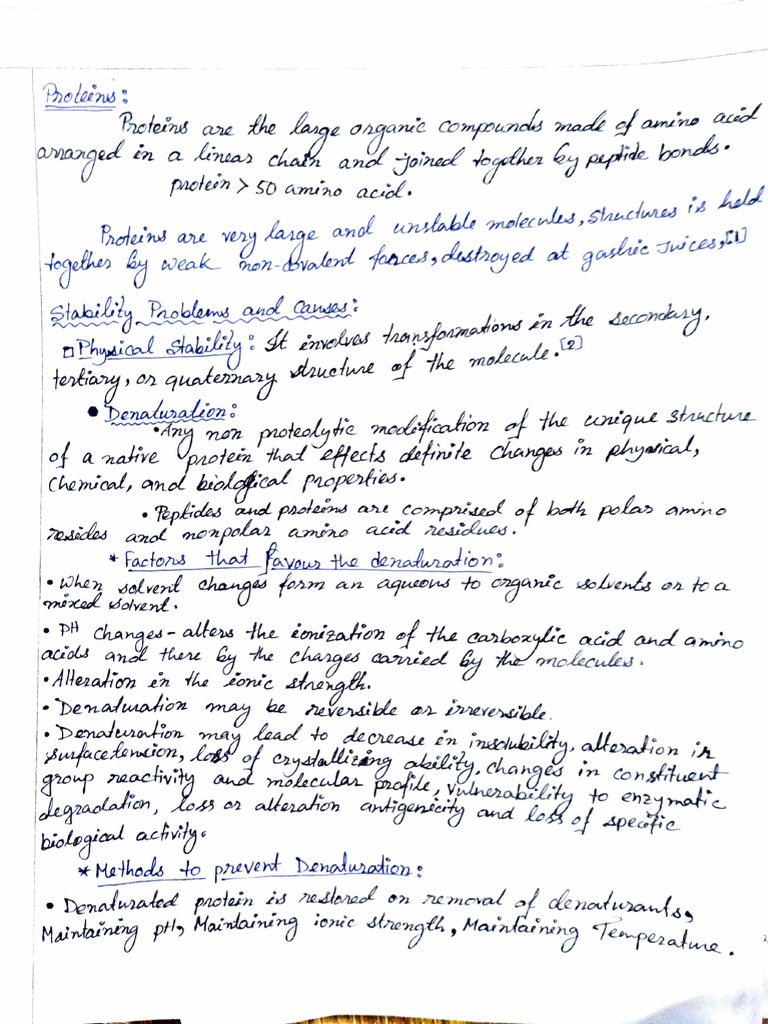 Proteins:
Proteins are the large organic compounds made of amino acid
arranged in a linear chain and joined together by peptide bonds.
protein > 50 amino acid.
Proteins are very large and unstable molecules, structures is held
together by weak non-covalent forces, destroyed at gastric Juices,[1]
Stability Problems and Causes:
□ Physical Stability: It involves transformations in the secondary,
tertiary, or quaternary structure of the molecule.[2]
● Denaturation:
• Any non proteolytic modification of the unique structure
of a native protein that effects definite changes in physical,
chemical, and biological properties.
• Peptides and proteins are comprised of both polar amino
resides and nonpolar amino acid residues.
* Factors that favour the denaturation:
• When solvent changes form an aqueous to organic solvents or to a
mixed solvent.
• PH changes - alters the ionization of the carboxylic acid and amino
acids and there by the charges carried by the molecules.
• Alteration in the ionic strength.
• Denaturation may be reversible or irreversible.
• Denaturation may lead to decrease in insolubility, alteration in
surface tension, loss of crystallizing ability, changes in constituent
group reactivity and molecular profile, vulnerability to enzymatic
degradation, loss or alteration antigenicity and loss of specific
biological activity.
* Methods to prevent Denaturation:
• Denaturated protein is restored on removal of denaturants,
Maintaining pH, Maintaining ionic strength, Maintaining Temperature.